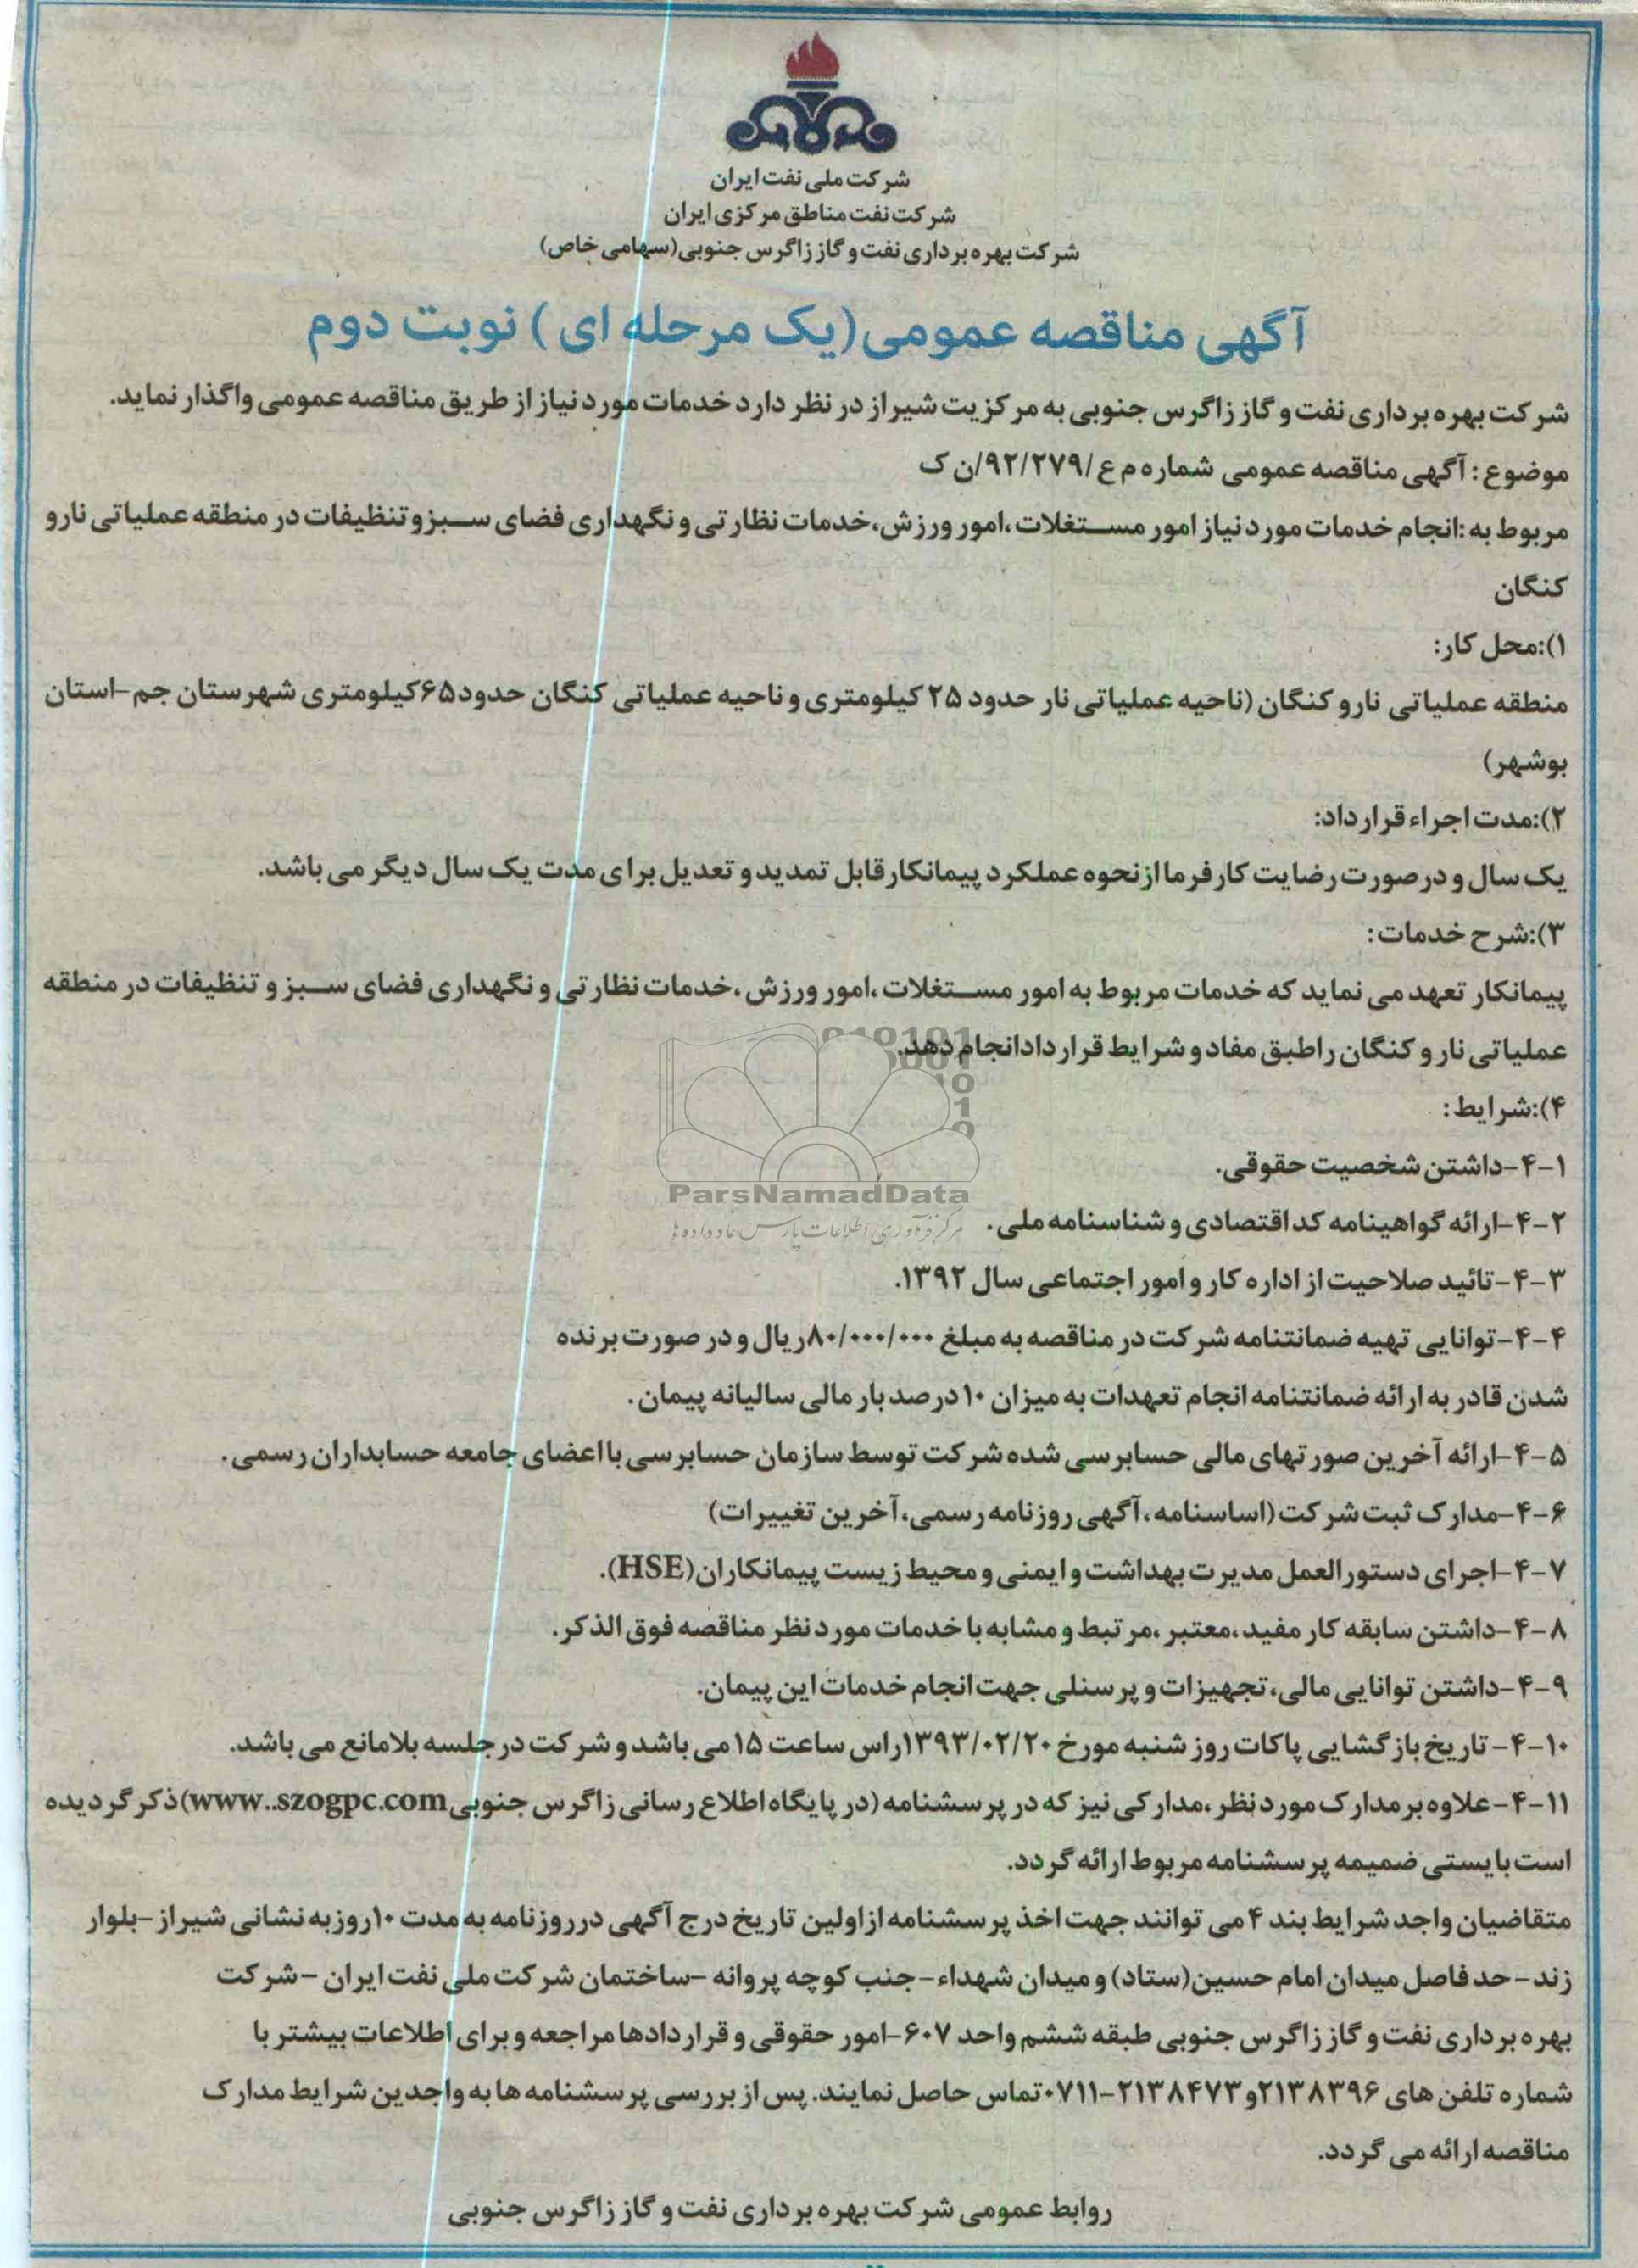 شرکت ملی نفت ایران
شرکت نفت مناطق مرکزی ایران
شرکت بهره برداری نفت و گاز زاگرس جنوبی(سهامی خاص)
آگهی مناقصه عمومی(یک مرحله ای ) نوبت دوم
شرکت بهره برداری نفت و گاز زاگرس جنوبی به مرکزیت شیراز در نظر دارد خدمات مورد نیاز از طریق مناقصه عمومی واگذار نماید.
موضوع : آگهی مناقصه عمومی شماره م ع /۹۲/۲۷۹/ن ک
مربوط به :انجام خدمات مورد نیاز امور مستغلات ،امور ورزش،خدمات نظارتی و نگهداری فضای سبز و تنظیفات در منطقه عملیاتی نار و
کنگان
۱):محل کار:
منطقه عملیاتی نار و کنگان (ناحیه عملیاتی نار حدود ۲۵ کیلومتری و ناحیه عملیاتی کنگان حدود۶۵کیلومتری شهرستان جم-استان
بوشهر)
۲):مدت اجراء قرارداد:
یک سال و در صورت رضایت کارفرما از نحوه عملکرد پیمانکار قابل تمدید و تعدیل برای مدت یک سال دیگر می باشد.
۳):شرح خدمات:
پیمانکار تعهد می نماید که خدمات مربوط به امور مستغلات ،امور ورزش ،خدمات نظارتی و نگهداری فضای سبز و تنظیفات در منطقه
عملیاتی نار و کنگان راطبق مفاد و شرایط قراردادانجام دهد.
۴):شرایط:
۴-۱-داشتن شخصیت حقوقی.
ParsNamadData
۴-۲-ارائه گواهینامه کد اقتصادی و شناسنامه ملی .
مرکز فرآوری اطلاعات پارس نماد داده ها
۴-۳-تائید صلاحیت از اداره کار و امور اجتماعی سال ۱۳۹۲.
۴-۴-توانایی تهیه ضمانتنامه شرکت در مناقصه به مبلغ ۸۰/۰۰۰/۰۰۰ریال و در صورت برنده
شدن قادر به ارائه ضمانتنامه انجام تعهدات به میزان ۱۰درصد بار مالی سالیانه پیمان .
۴-۵-ارائه آخرین صورتهای مالی حسابرسی شده شرکت توسط سازمان حسابرسی با اعضای جامعه حسابداران رسمی .
۴-۶-مدارک ثبت شرکت (اساسنامه ،آگهی روزنامه رسمی، آخرین تغییرات)
۴-۷-اجرای دستورالعمل مدیریت بهداشت و ایمنی و محیط زیست پیمانکاران(HSE).
۴-۸-داشتن سابقه کار مفید ،معتبر ،مرتبط و مشابه با خدمات مورد نظر مناقصه فوق الذکر.
۴-۹-داشتن توانایی مالی، تجهیزات و پرسنلی جهت انجام خدمات این پیمان.
۴-۱۰- تاریخ بازگشایی پاکات روز شنبه مورخ ۱۳۹۳/۰۲/۲۰راس ساعت ۱۵می باشد و شرکت در جلسه بلامانع می باشد.
۴-۱۱-علاوه بر مدارک مورد نظر ،مدارکی نیز که در پرسشنامه (در پایگاه اطلاع رسانی زاگرس جنوبی www..szogpc.com)ذکر گردیده
است بایستی ضمیمه پرسشنامه مربوط ارائه گردد.
متقاضیان واجد شرایط بند ۴ می توانند جهت اخذ پرسشنامه از اولین تاریخ درج آگهی در روزنامه به مدت ۱۰روز به نشانی شیراز -بلوار
زند- حد فاصل میدان امام حسین(ستاد) و میدان شهداء- جنب کوچه پروانه -ساختمان شرکت ملی نفت ایران -شرکت
بهره برداری نفت و گاز زاگرس جنوبی طبقه ششم واحد ۶۰۷-امور حقوقی و قراردادها مراجعه و برای اطلاعات بیشتر با
شماره تلفن های ۲۱۳۸۳۹۶و۲۱۳۸۴۷۳-۰۷۱۱تماس حاصل نمایند. پس از بررسی پرسشنامه ها به واجدین شرایط مدارک
مناقصه ارائه می گردد.
روابط عمومی شرکت بهره برداری نفت و گاز زاگرس جنوبی